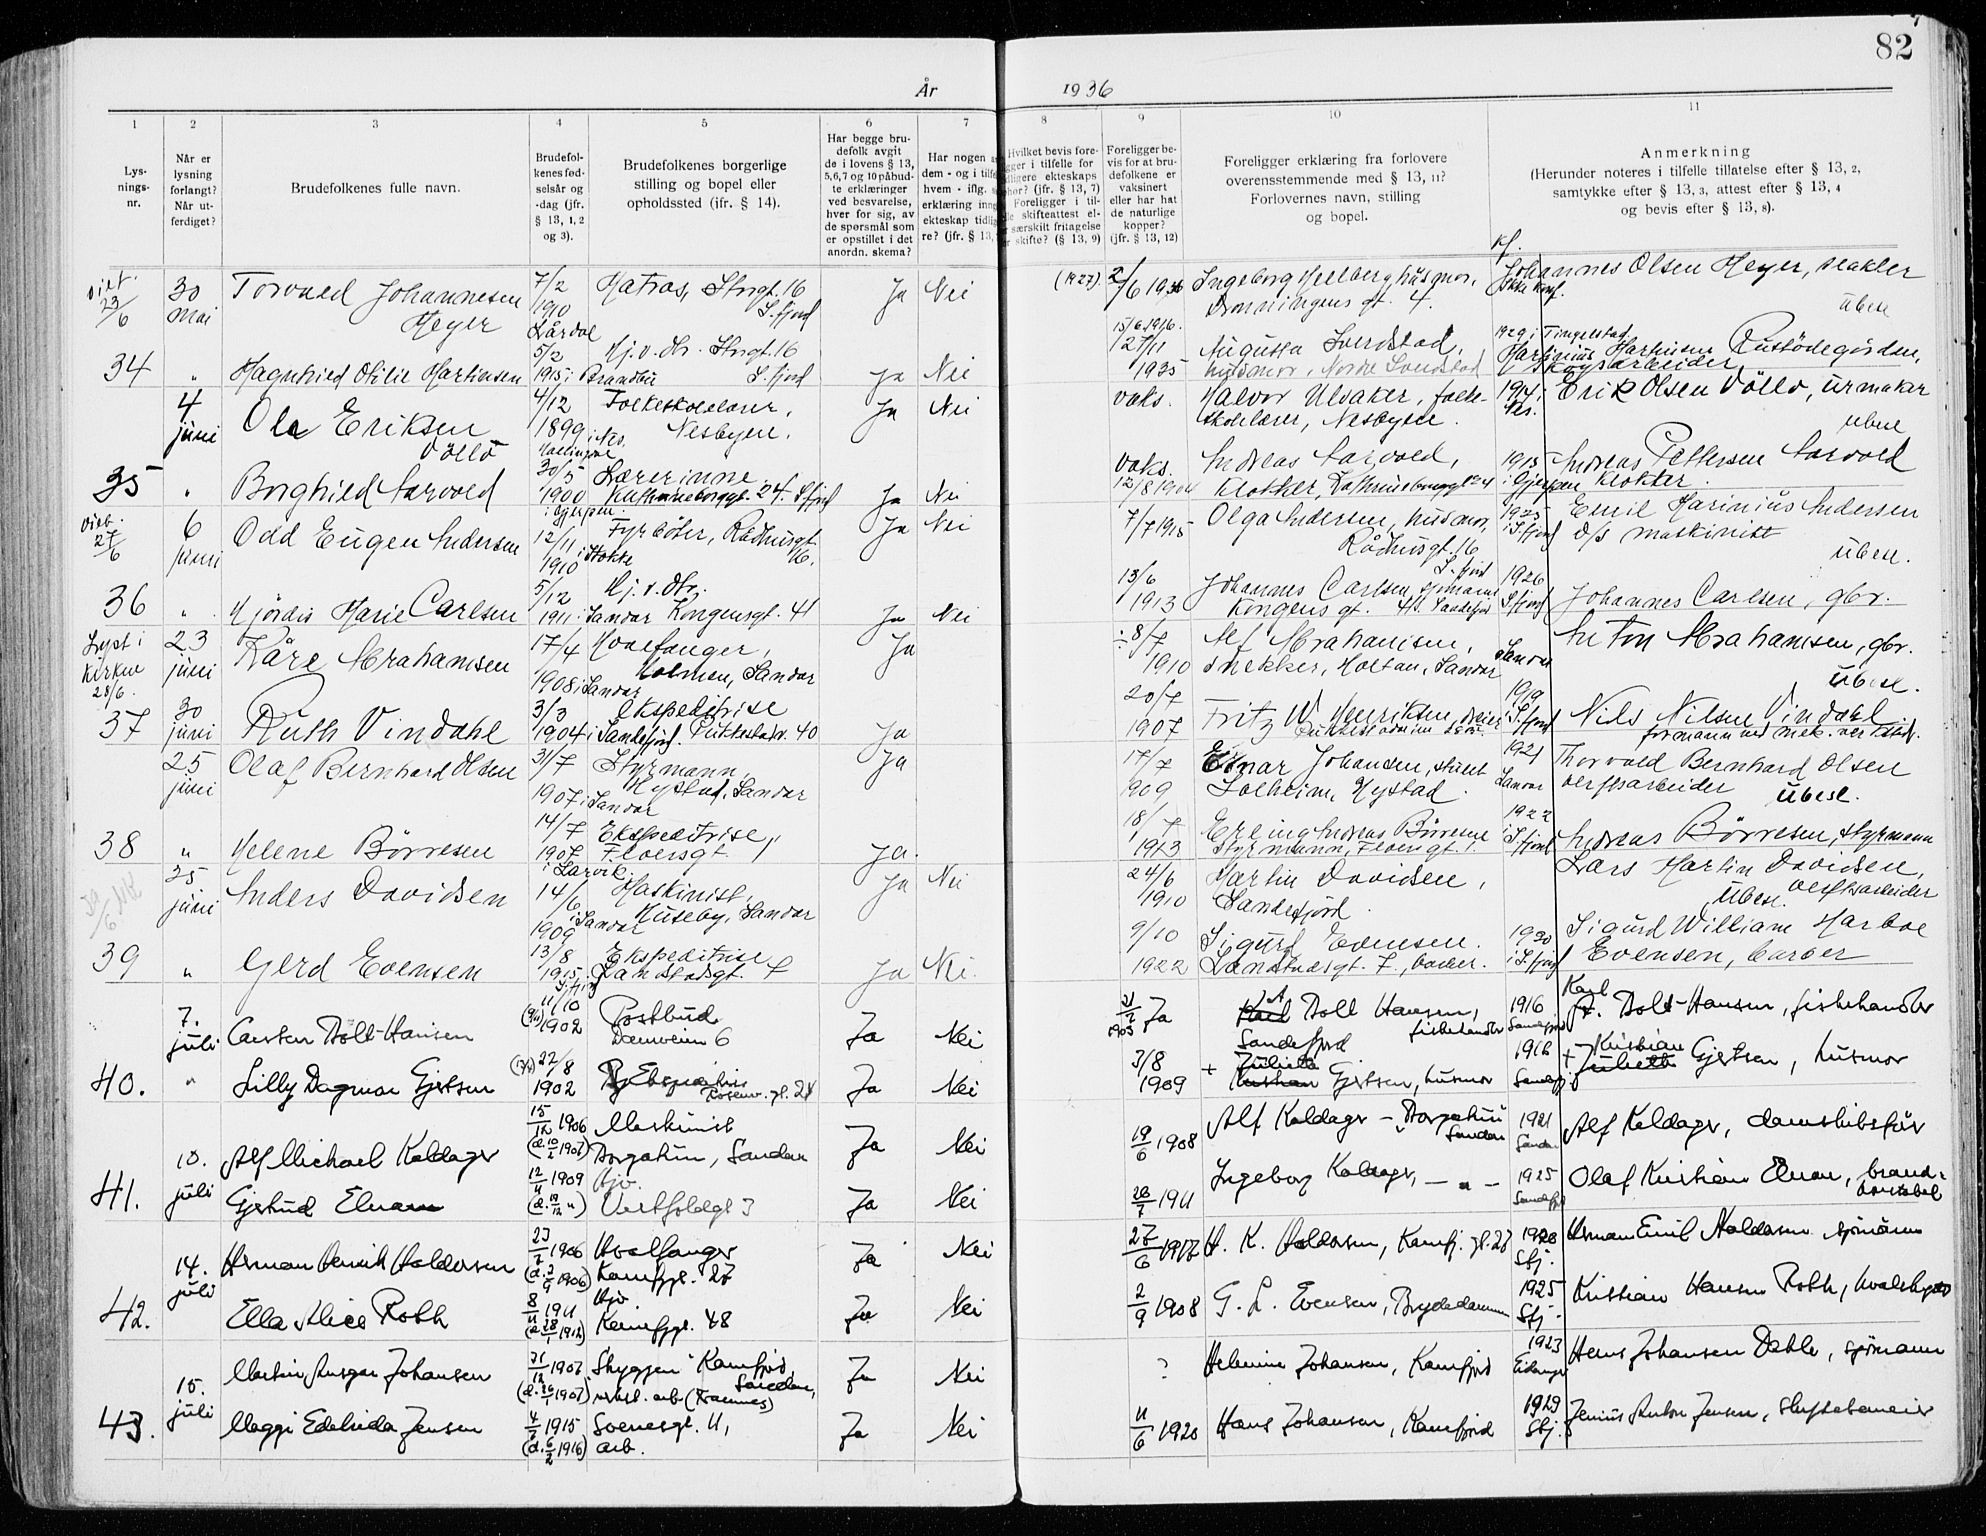 82
År 1936
1 2 3 4 5 6 7 8 9 10 11
Lys-
nings-
nr.
Når er
lysning
forlangt?
Når ut-
ferdiget?
Brudefolkenes fulle navn.
Brudefol-
kenes fød-
selsår og
-dag (jfr.
§ 13, 1, 2
og 3).
Brudefolkenes borgerlige
stilling og bopel eller
opholdssted (ifr. § 14).
Har begge bru-
defolk avgit
de i lovens § 13,
5,6,7 og 10 påbud-
te erklæringer
ved besvarelse,
hver for sig, av
de spørsmål som
er opstillet i det
anordn. skema?
Har nogen
dem - og i tilfe
hvem - iflg.
erklæring inng
ekteskap tidlig
re? (jfr. § 13,
Hvilket bevis fore-
gger i tilfelle for
ekteskaps
hør? (jfr. § 13, 7)
Foreligger i til-
skifteattest el-
særskilt fritagelse
skifte? (§ 13, 9)
Foreligger be-
vis for at bru-
defolkene er
vaksinert
eller har hat
de naturlige
kopper?
(jfr. § 13, 12)
Foreligger erklæring fra forlovere
overensstemmende med § 13, 11?
Forlovernes navn, stilling
og bopel.
Anmerkning
(Herunder noteres i tilfelle tillatelse efter § 13, 2,
samtykke efter § 13, 3, attest efter § 13, 4
og bevis efter § 13, 8).
23/6 30 mai Torvald Johannesen 7/2 Matros, Storgt. 16 Ja Nei (1927) 2/6 1936 Ingeborg Hellberg, husmor, Johannes Olsen Heyer, makler
Heyer 1910 S.fjord Dronningens gt. 4. Ikke konf. ubesl.
Lårdal 15/6 1916. 1929 i Tingelstad
34 " Magnhild Otilie Martinsen 5/2 1915 i Brandbu Hj. v. dtr. Storgt. 16 S.fjord Ja Nei 27/11 1935 Augusta Svendstad, husmor, Nordre Svendstad Martinius Martinsen Rustødegården, skogsarbeider
4 juni Ole Eriksen 4/12 Folkeskolelærer, Ja Nei vaks. Halvor Ulsaker, folke- 1914 i Nes. Erik Olsen Völlo, urmaker
Völlo 1899 i Nes. Hallingdal Nesbyen. skolelærer, Nesbyen. ubesl
35 " Borghild Aarvold 30/5 1900 i Gjerpen. Lærerinne Ja Nei vaks. 12/8 1904 Andreas Aarvold, klokker, 1915 i Gjerpen Andreas Pettersen Aarvold klokker.
27/6 6 juni Odd Eugen Andersen 12/11 1910 i Stokke Fyrbøter, Rådhusgt. 16. Ja Nei 7/7 1915 Olga Andersen, husmor, Rådhusgt. 16 S.fjord 1925 i S.fjord Emil Marinius Andersen d/s maskinist ubesl.
36 " Hjördis Marie Carlsen 5/12 1911 i Sandar Hj. v. dtr. Kongensgt. 41 Ja Nei 13/6 1913 Johannes Carlsen, sjömann Kongens gt. 41. Sandefjord 1926 S.fjord Johannes Carlsen, gbr.
Lyst i kirken 28/6. 23 juni Kåre Abrahamsen 17/4 1908 i Sandar Hvalfanger, Holmen, Sandar Ja 8/7 1910 Alf Abrahamsen, snekker, Holtan, Sandar Sandar Anton Abrahamsen, gbr. ubesl.
37 30 juni Ruth Vindahl 3/3 1904 i Sandefjord. Ekspeditrise Pukkestadv. 40 Ja 20/7 1907 Fritz W Henriksen, 1919 i S.fjord Nils Nilsen Vindahl formann ved mek. verksted.
25 juni Olaf Bernhard Olsen 31/7 1907 i Sandar Styrmann, Nystad, Sandar Ja 17/7 1909 Einar Johansen, Solheim, Nystad. 1921 Sandar Thorvald Bernhard Olsen verftsarbeider ubesl.
38 " Helene Börresen 14/7 1907 i Larvik. Ekspeditrise, Floersgt. 1 Ja. 18/7 1913 Erling Andreas Börresen styrmann, Floersgt. 1. 1922 i S.fjord Andreas Börresen, styrmann
25 juni Anders Davidsen 14/6 1909 i Sandar Maskinist, Huseby, Sandar Ja Nei 24/6 1910 Martin Davidsen, Sandefjord. Lars Martin Davidsen, verftsarbeider ubesl.
39 " Gerd Evensen 13/8 1915 i S.fjord Ekspeditrise Landstadsgt. 7 Ja Nei. 9/10 1922 Sigurd Evensen. Landstadsgt. 7, barber. 1930 i S.fjord Sigurd William Harboe Evensen, barber
7. juli Carsten Dolt-Hansen 11/10 1902 Postbud Ja Nei 1903 Ja Karl A Dolt Hansen, fiskehandler Sandefjord 1916 Sandefjord Karl A. Dolt-Hansen, fiskehandler
40. " Lilly Dagmar Gjertsen 27/8 1902 Rosenv. gt. 21 Ja Nei 3/8 1909 + Julie Kristian Gjertsen, husmor 1916 Sandefj. + Kristian Gjertsen, husmor
10. juli Alf Michael Kaldager 15/12 1906 (d. 10/2 1907) Maskinist Sandar Ja Nei 19/6 1908 Alf Kaldager - Sandar 1921 Sandar Alf Kaldager, damskibsfür
41. Gjertrud Elnan 12/11 1909 (d. 19/12 ") Hjv. Vestfoldgt 3 Ja Nei 28/7 1911 Ingeborg Kaldager, - " - 1925 Sandefj Olaf Kristian Elnan, brand- konstabel
14. juli Herman Henrik Haldorsen 23/7 1906 (d. 2/9 1906) Hvalfanger Kamfjgt. 27 Ja Nei 27/6 1917 H. K. Haldorsen, Kamfj. gt. 27 1920 Sfj. Herman Emil Haldorsen sjömann
42. Ella Alice Roth 8/11 1911 (d. 28/1 1912) Hjv Kamfjgt. 48 Ja Nei 2/9 1908 G. L. Evensen, Brydedammen 1925 Sfj. Kristian Hansen Roth, hvalskytter
15. juli Martin Ansgar Johansen 31/12 1907 (d. 26/1 1907) "Skyggen" Kamfjord Sandar, verkst. arb (Framnes) Ja Nei ? Helmine Johansen, Kamfjord 1923 Eidanger Hans Johansen Dahle, sjömann
43. Maggi Edelinda Jensen 4/ 1915 (d. 6/2 1916) Svenesgt. 11, arb. Ja Nei 11/6 1920 Hans Johansen, Kamfjord 1929 Sfj. Jenius Anton Jensen, skiftebaneier